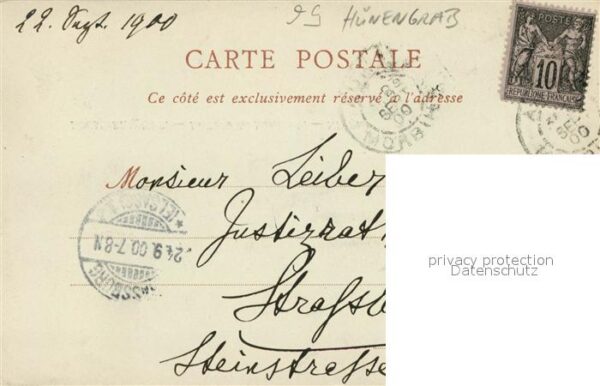 22. Sept. 1900
95 HÜNENGRAB
POSTE
10
REPUBLIQUE FRANÇAISE
CARTE POSTALE
Ce côté est exclusivement réservé à l'adresse
MORBIHAN
Monsieur Leiber
Justizrat
Strassb
Steinstrasse
24.9.00.7-8N
privacy protection
Datenschutz